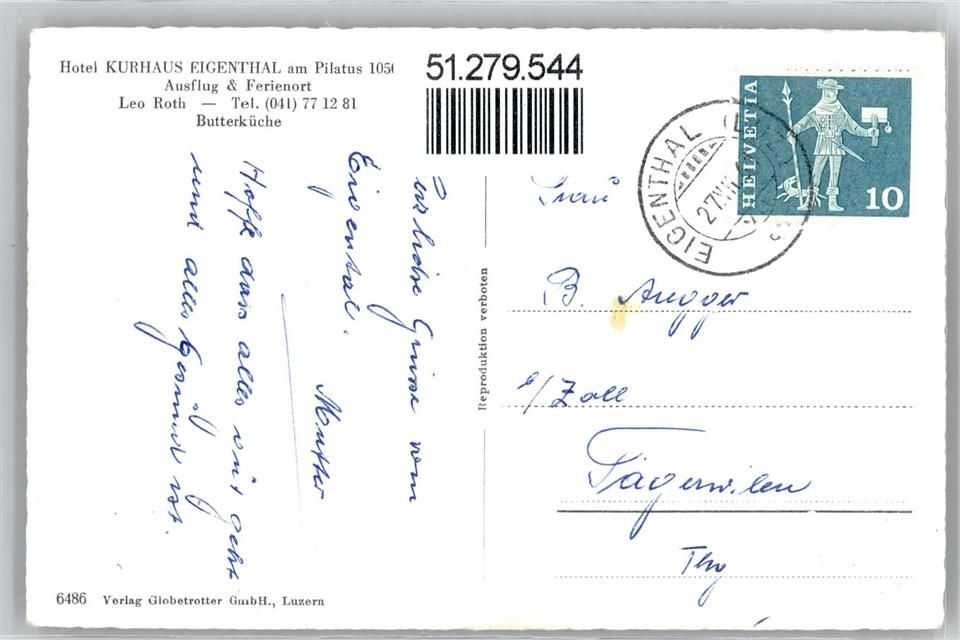 Hotel KURHAUS EIGENTHAL am Pilatus 1050
Ausflug & Ferienort
Leo Roth — Tel. (041) 77 12 81
Butterküche
51.279.544
HELVETIA
10
EIGENTHAL
27.VII
Grüsse vom
Eigental.
Mutter
Hoffe dass alles gut geht
und alles gesund ist.
Reproduktion verboten
Frau
B. Augger
b/Zoll
Tägerwilen
Thg
6486 Verlag Globetrotter GmbH., Luzern